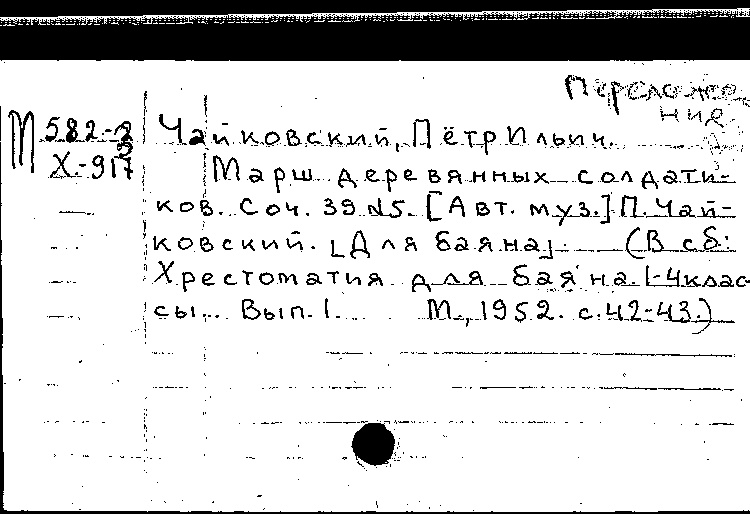 Переложе-
ние
М 582-2
3
Х-917
Чайковский, Пётр Ильич.
Марш деревянных солдати-
ков. Соч. 39 №5. [Авт. муз.] П. Чай-
ковский. [Для баяна]. (В сб:
Хрестоматия для баяна. 1-4 клас-
сы.. Вып. 1. М., 1952. с. 42-43.)